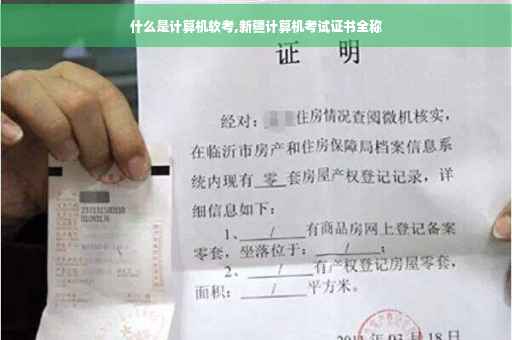 什么是计算机软考,新疆计算机考试证书全称
证 明
经对：住房情况查阅微机核实，
在临沂市房产和住房保障局档案信息系
统内现有 零 套房屋产权登记记录，详
细信息如下：
1、 / 有商品房网上登记备案
零套，坐落位于： / ；
2、 / 有产权登记房屋零套，
面积： / 平方米。